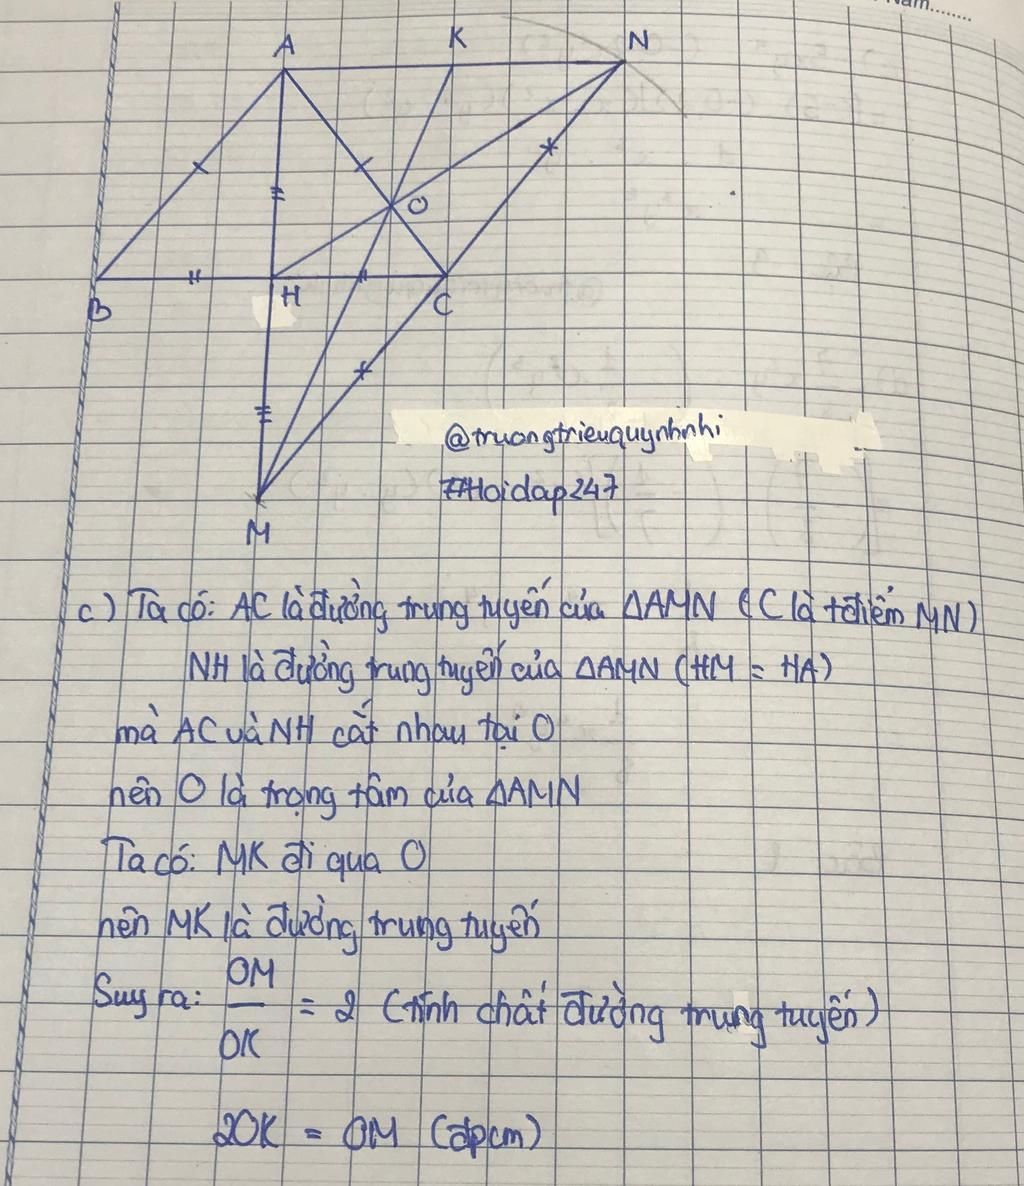 Năm........
A
K
N
O
B
H
C
@truongtrieuquynhnhi
#Hoidap247
M
c) Ta có: AC là đường trung tuyến của ΔAMN (C là tđiểm MN)
NH là đường trung tuyến của ΔAMN (HM = HA)
mà AC và NH cắt nhau tại O
nên O là trọng tâm của ΔAMN
Ta có: MK đi qua O
nên MK là đường trung tuyến
Suy ra: OM/OK = 2 (tính chất đường trung tuyến)
2OK = OM (đpcm)